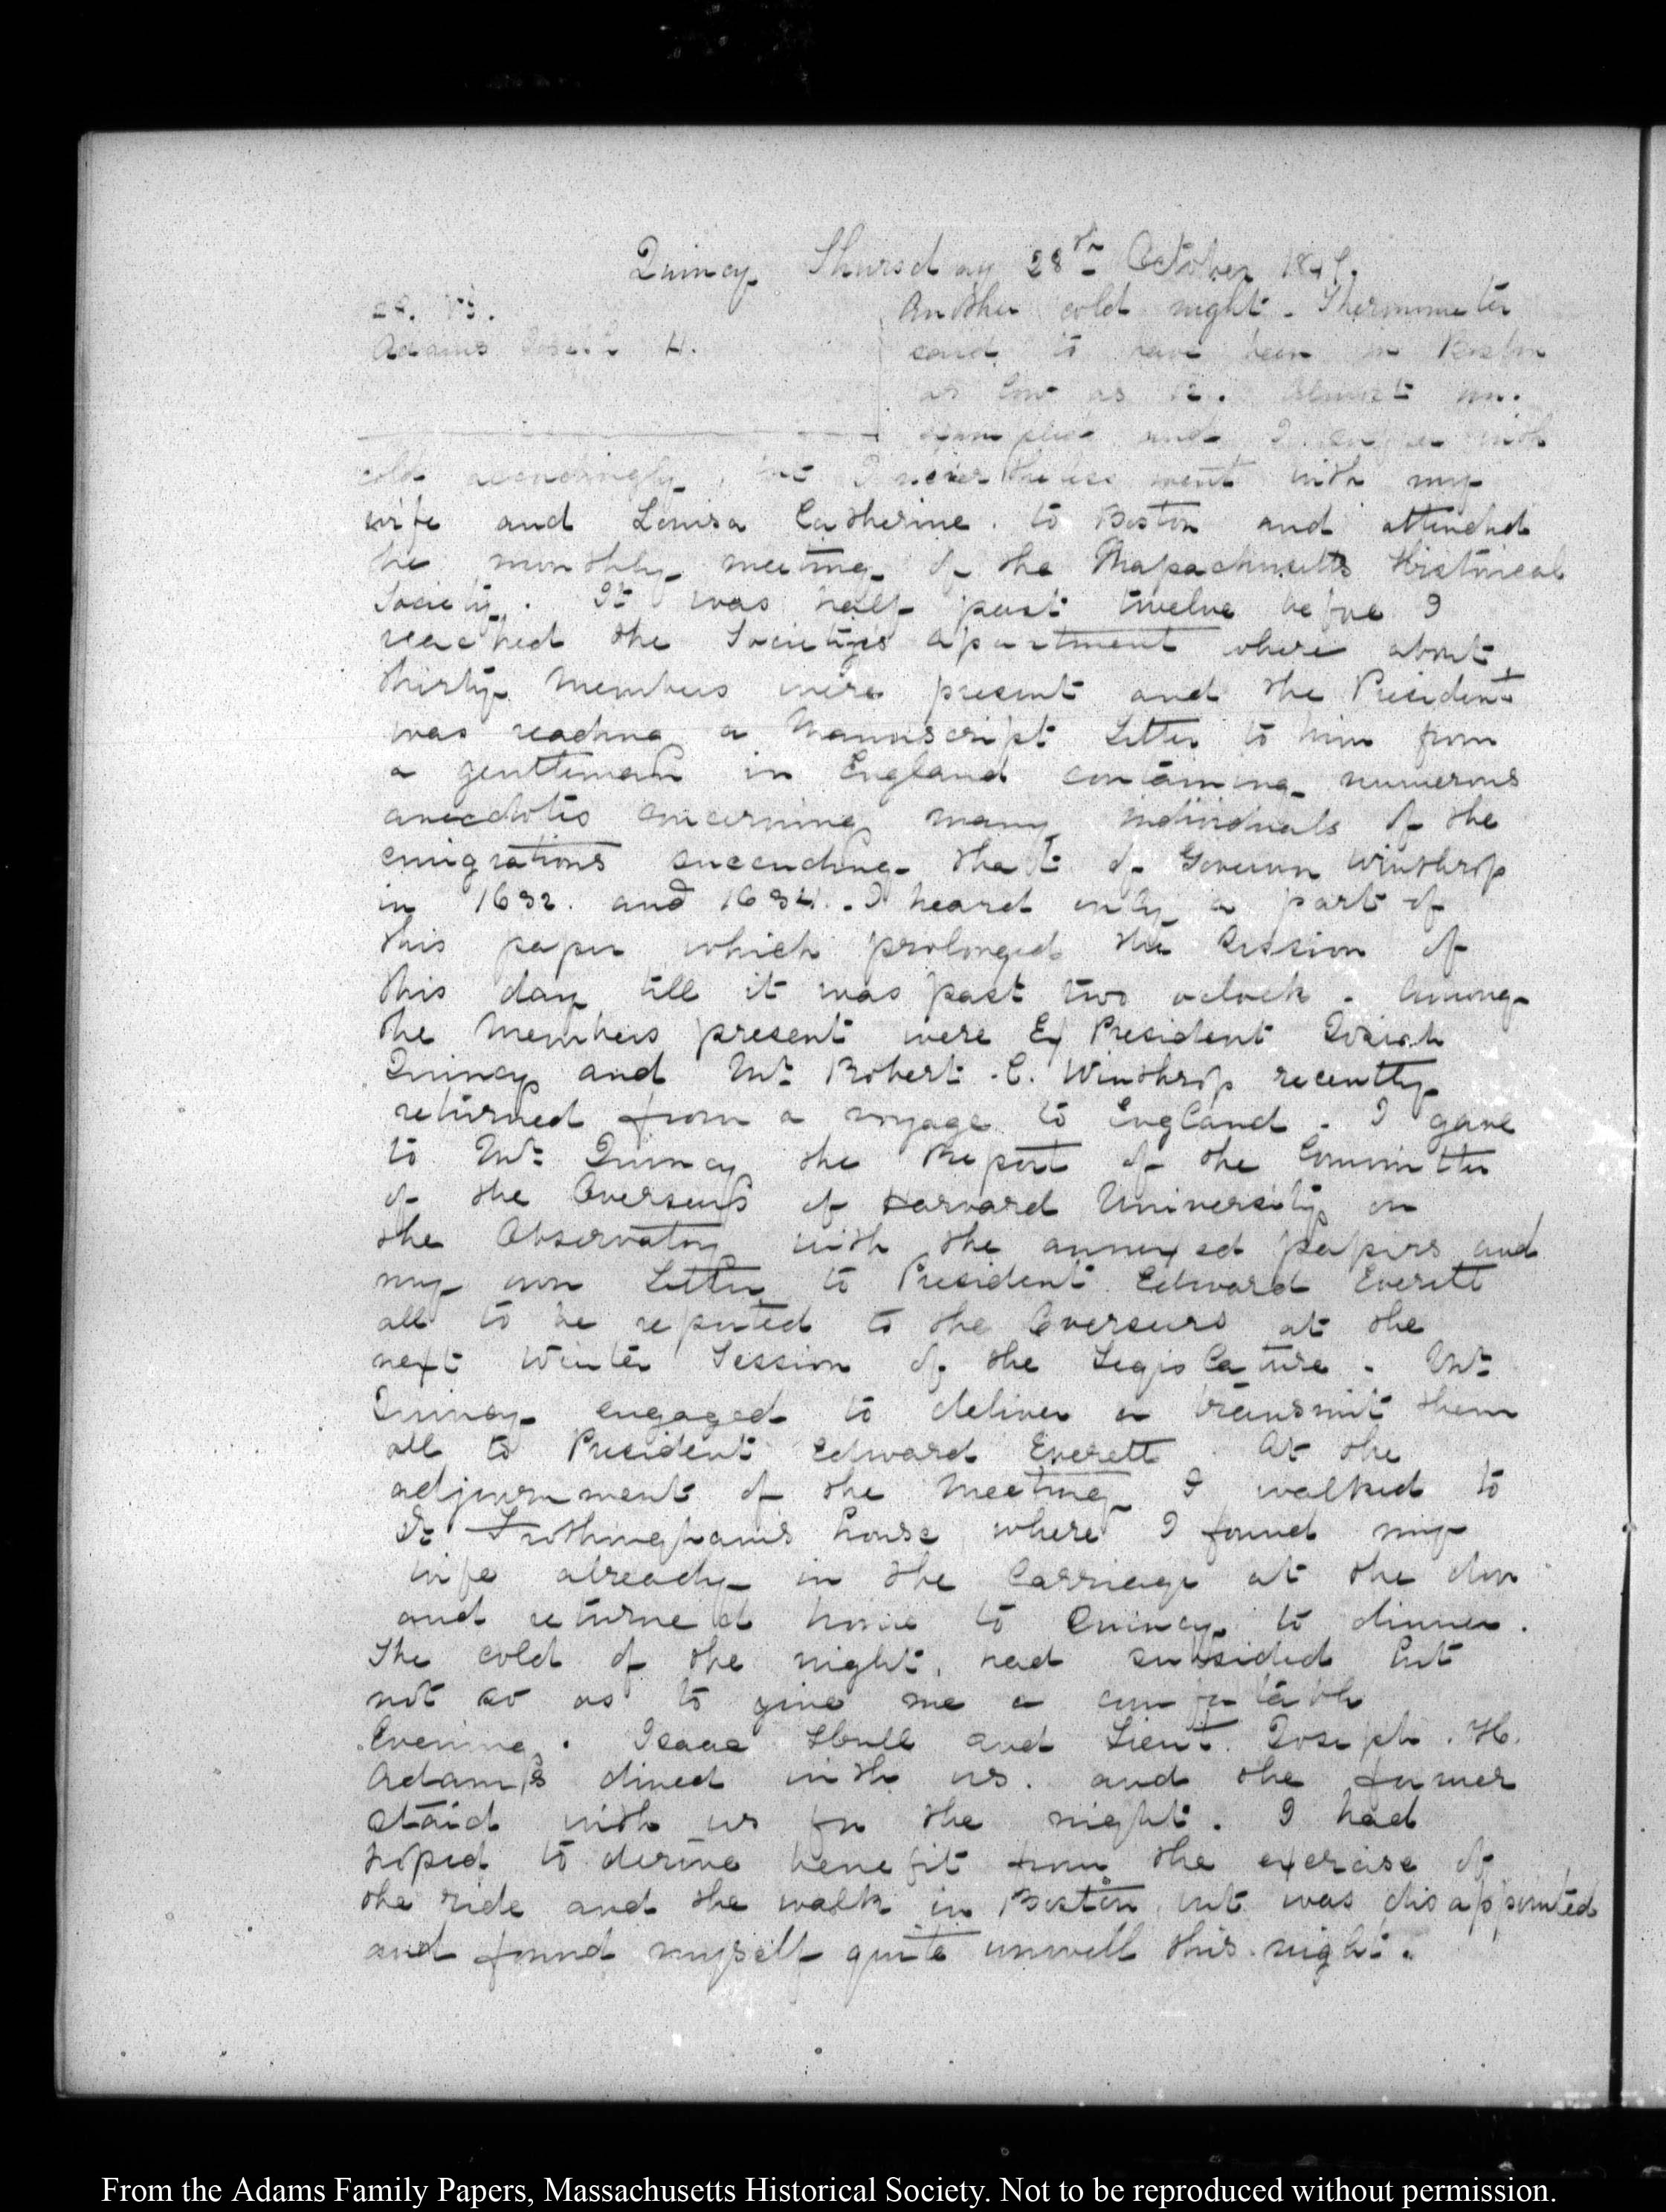 Quincy Thursday 28th October 1847.
Adams Joseph H.
Another cold night. Thermometer
said to have been in Boston
as low as 12. almost un-
and I with
cold accordingly, but I nevertheless went with my
wife and Louisa Catherine. to Boston and attended
the monthly meeting of the Massachusetts Historical
Society. It was half past twelve before I
reached the Society's apartment where about
thirty members were present and the President
was reading a Manuscript Letter to him from
a gentleman in England containing numerous
anecdotes concerning many individuals of the
emigrations succeeding that of Governor Winthrop
in 1632. and 1634. I heard only a part of
this paper which prolonged the Session of
this day till it was past two o'clock. Among
the Members present were Ex President Josiah
Quincy and Mr. Robert C. Winthrop recently
returned from a voyage to England. I gave
to Mr. Quincy the Report of the Committee
of the Overseers of Harvard University on
the Observatory with the annexed papers and
my own Letter to President Edward Everett
all to be reported to the Overseers at the
next Winter Session of the Legislature. Mr.
Quincy engaged to deliver or transmit them
all to President Edward Everett. At the
adjournment of the Meeting I walked to
Dr. Frothingham's house where I found my
wife already in the Carriage at the door
and returned home to Quincy to dinner.
The cold of the night, had subsided but
not so as to give me a comfortable
Evening. Isaac Hull and Lieut. Joseph. H.
Adams dined with us. and the former
staid with us for the night. I had
hoped to derive benefit from the exercise of
the ride and the walk in Boston, but was disappointed
and found myself quite unwell this night.
From the Adams Family Papers, Massachusetts Historical Society. Not to be reproduced without permission.